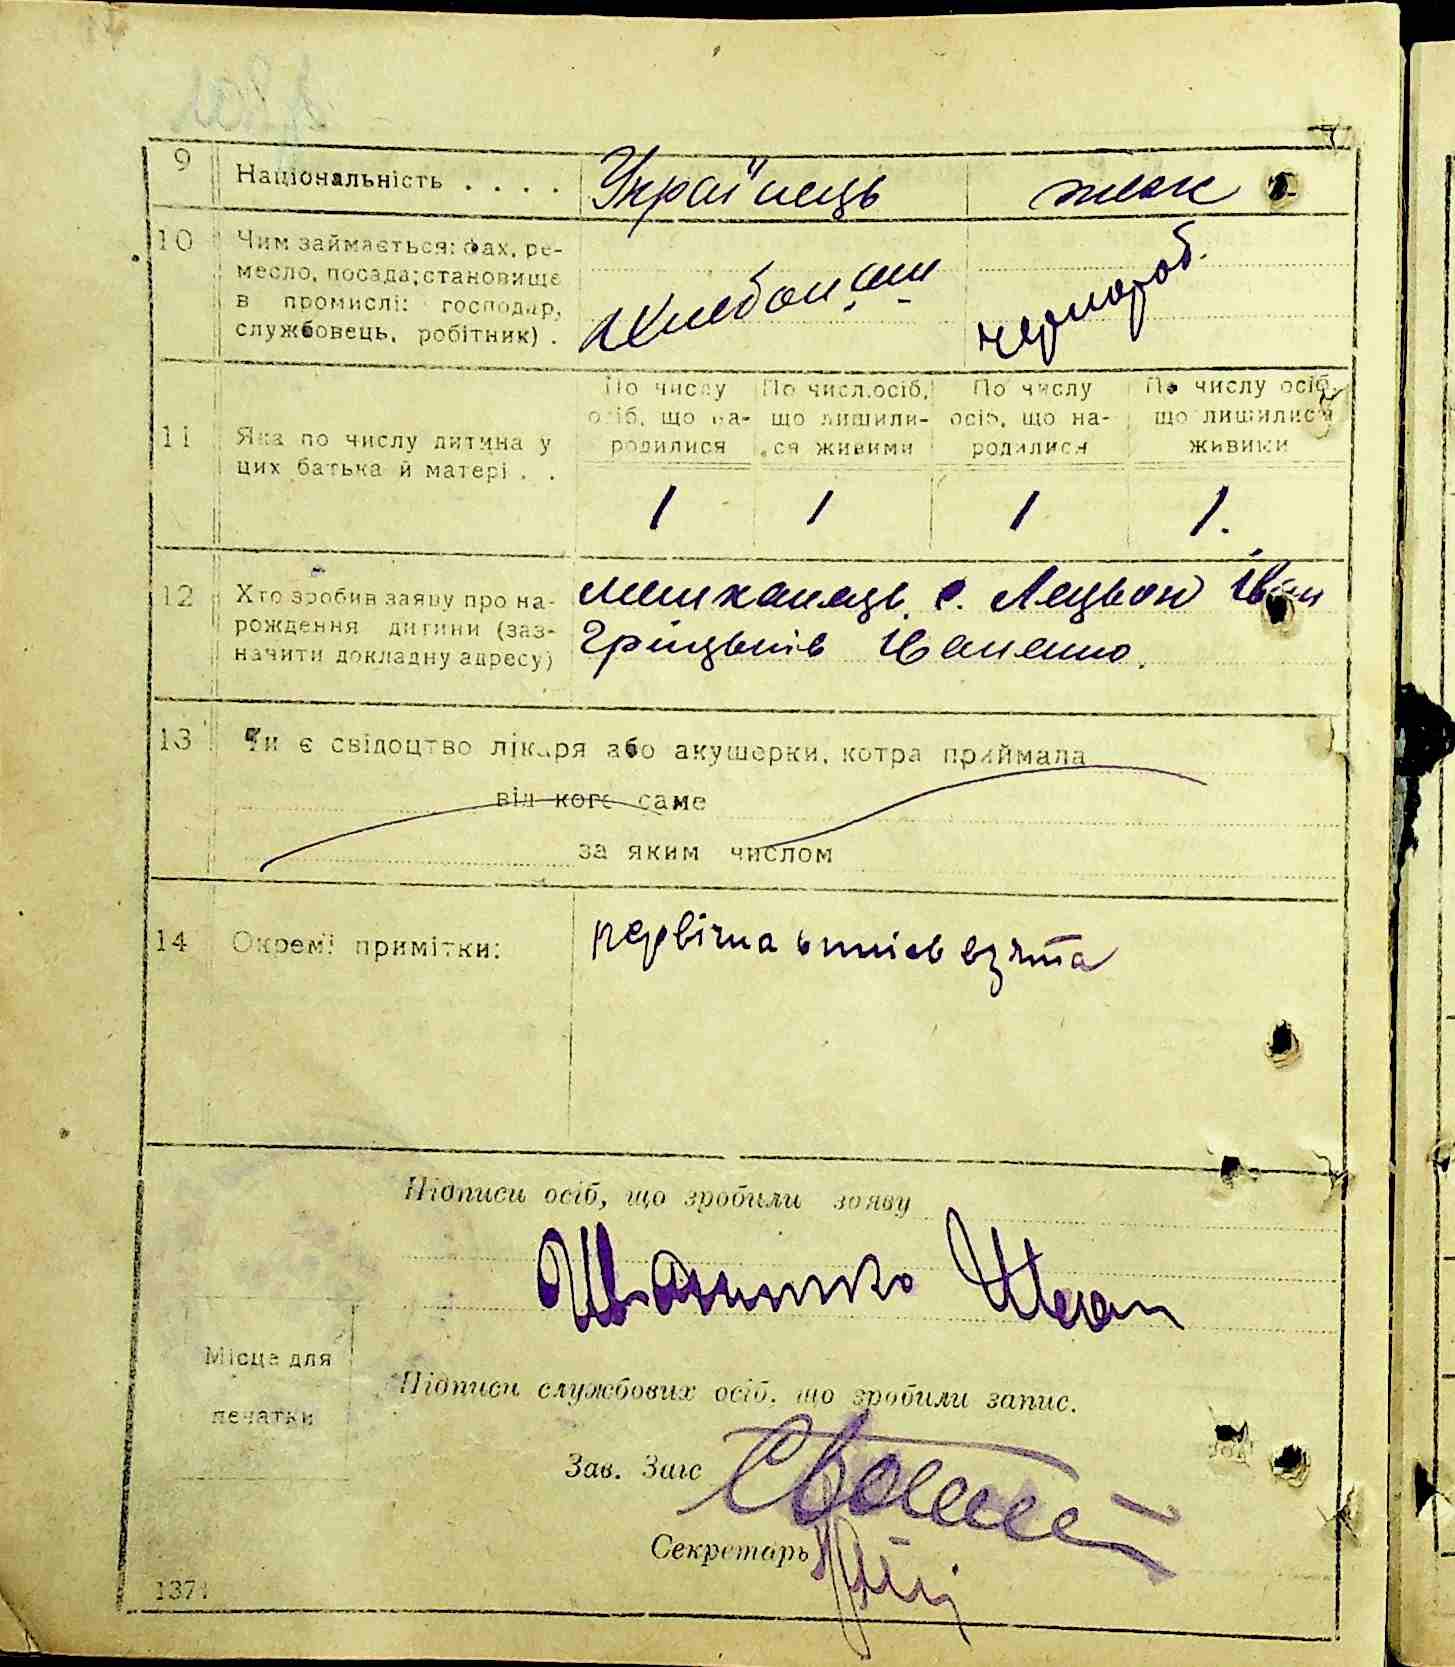 9 Національність . . . . Українець
10 Чим займається: фах, ре-
месло, посада; становище
в промислі: господар,
службовець, робітник) .
По числу осіб, що на-родилися По числ.осіб, що лишили-ся живими По числу осіб, що на-родилися По числу осіб, що лишилися живими
11 Яка по числу дитина у
цих батька й матері . .
1 1 1 1.
12 Хто зробив заяву про на-
рождення дитини (заз-
начити докладну адресу)
мешканець с. Іван
Грицьків Іваненко.
13 Чи є свідоцтво лікаря або акушерки, котра приймала
від кого саме
за яким числом
14 Окремі примітки: первічна взята
Підписи осіб, що зробили заяву
Іваненко Іван
Місце для
печатки
Підписи службових осіб, що зробили запис.
Зав. Загс
Секретарь
1371